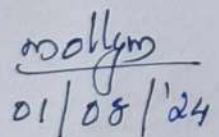 mollym
01/08/'24